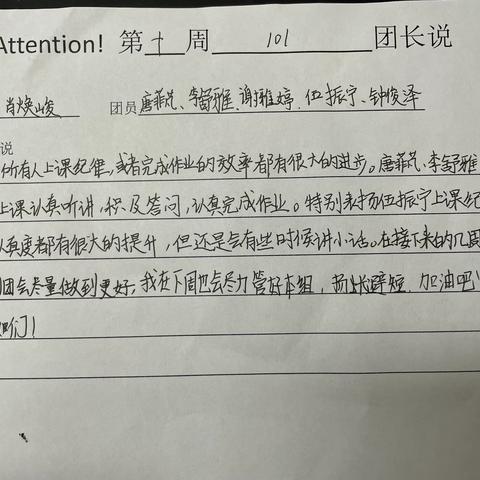 Attention! 第十周 101 团长说
肖焕峻 团员 唐菲凡、李舒雅、谢雅婷、伍振宁、钟俊泽
说
所有人上课纪律,或者完成作业的效率都有很大的进步。唐菲凡、李舒雅
上课认真听讲,积及答问,认真完成作业。特别表扬伍振宁上课纪
认真度都有很大的提升,但还是会有些时候讲小话。在接下来的几周
团会尽量做到更好,我在下周也会尽力管好本组,扬长辟短,加油吧!
们!